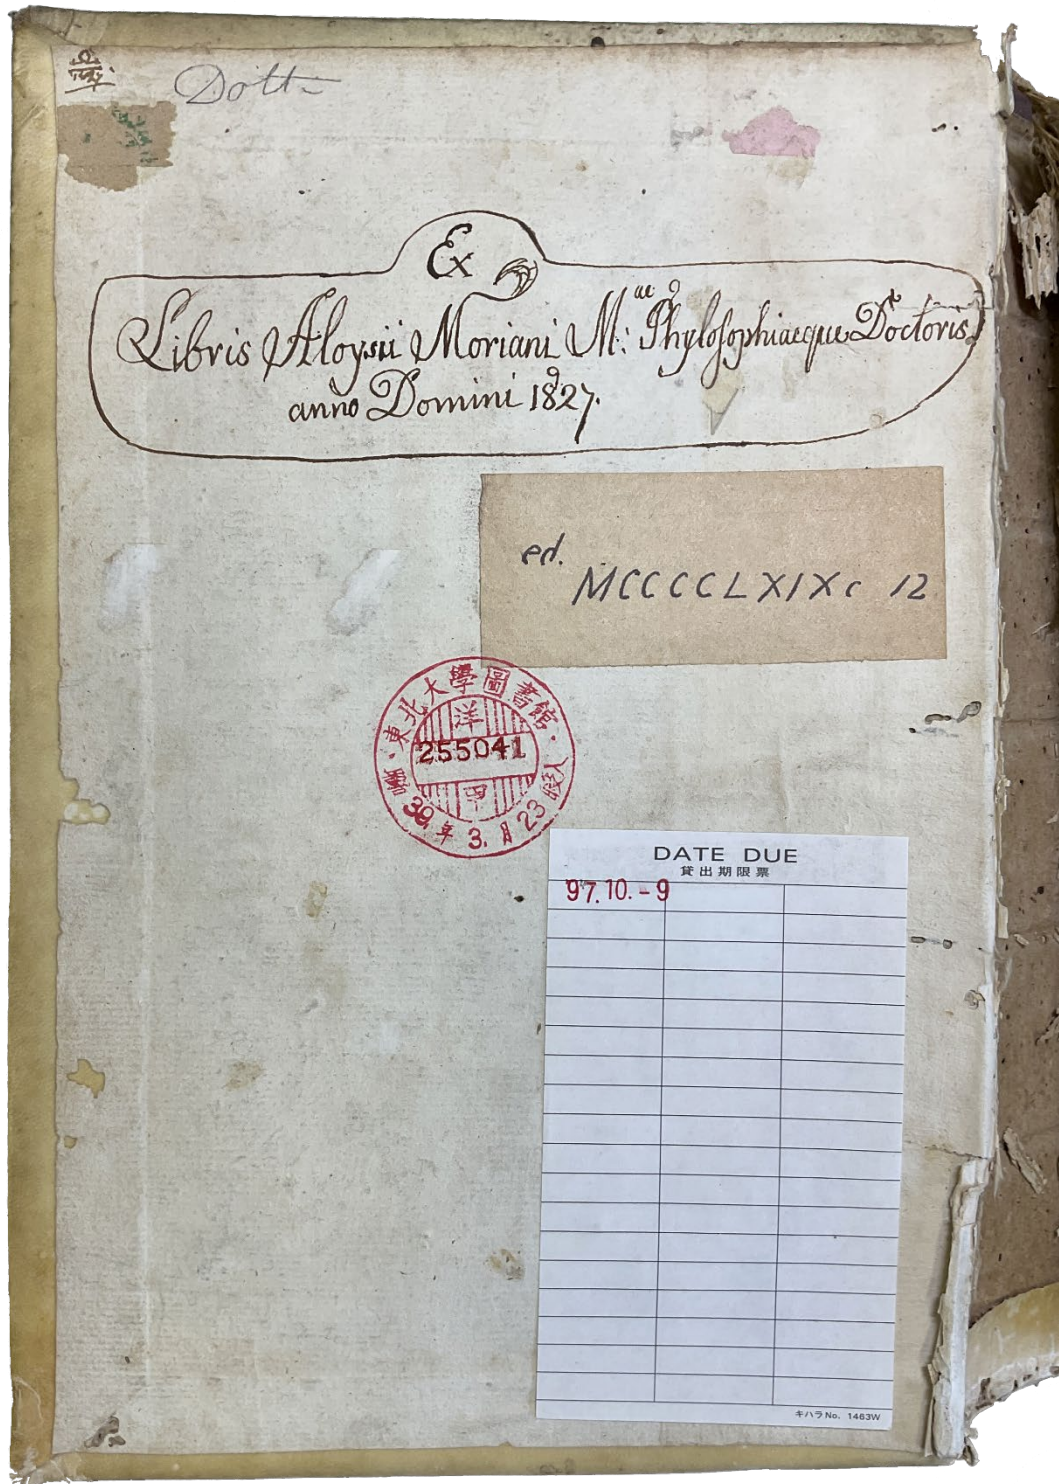 Dott
Ex
Libris Aloysii Moriani M:ae Phylosophiaeque Doctoris
anno Domini 1827.
ed.
MCCCCLXIXc 12
東北大學圖書館
洋
255041
甲
39年3月23
DATE DUE
貸出期限票
97.10.-9
キハラ No. 1463W